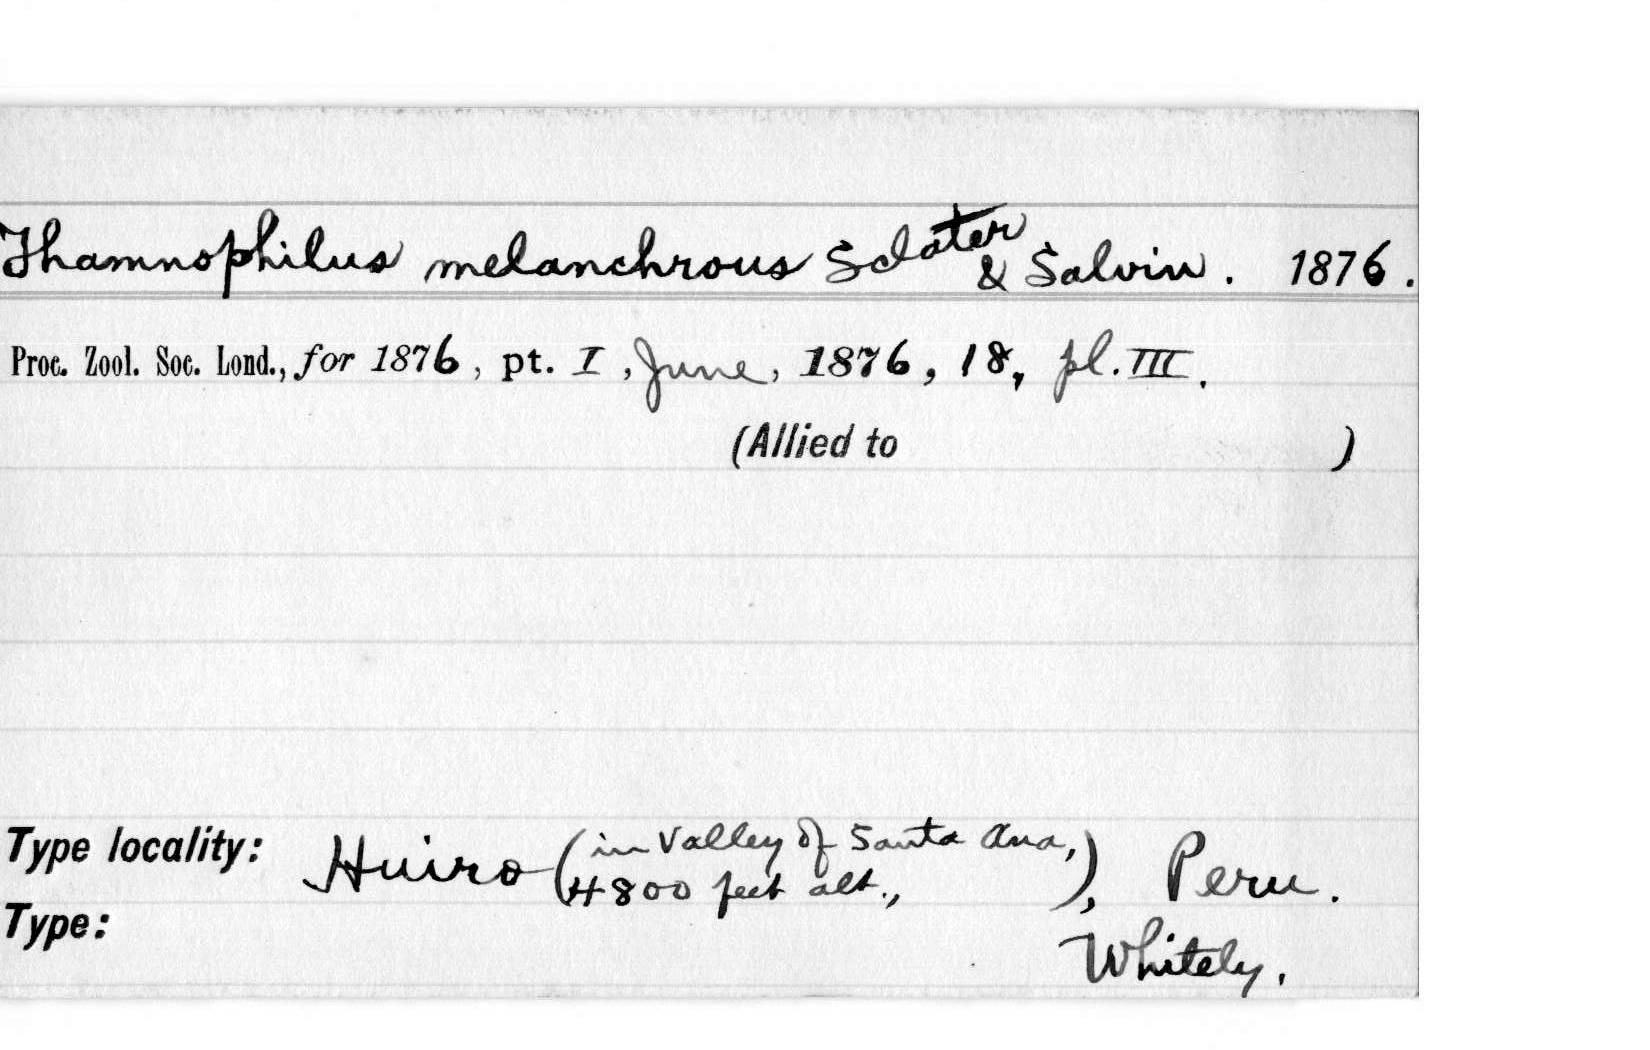 Thamnophilus melanchrous Sclater & Salvin. 1876.
Proc. Zool. Soc. Lond., for 1876, pt. I, June, 1876, 18, pl. III.
(Allied to )
Type locality: Huiro (in Valley of Santa Ana,
4800 feet alt.,), Peru.
Type:
Whitely.